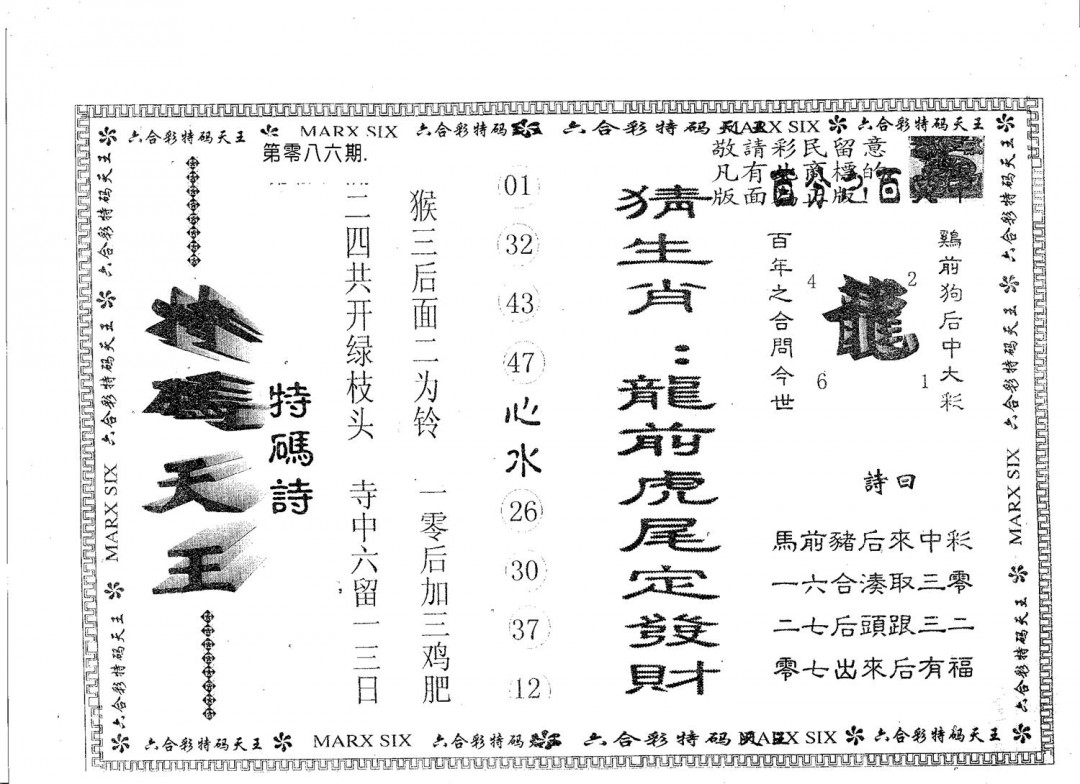 六合彩特码天王 MARX SIX 六合彩特码 六合彩特码天王 MARX SIX 六合彩特码天王
第零八六期.
敬請彩民留意
凡有
版面
百
鷄前狗后中大彩
龍
4
2
6
1
百年之合問今世
詩曰
馬前豬后來中彩
一六合湊取三零
二七后頭跟三二
零七出來后有福
猜生肖：龍前虎尾定發財
01
32
43
47
心水
26
30
37
12
猴三后面二为铃
一零后加三鸡肥
二四共开绿枝头
寺中六留一三日
特碼詩
特碼天王
六合彩特码天王 MARX SIX 六合彩特码天王 六合彩特码天王
六合彩特码天王 六合彩特码天王 MARX SIX 六合彩特码天王
六合彩特码天王 MARX SIX 六合彩特码 六合彩特码天王 MARX SIX 六合彩特码天王